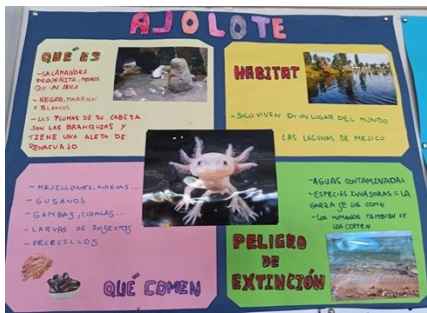 AJOLOTE
QUÉ ES
-SALAMANDRA
PEQUEÑITA, MENOS
QUE UN BOLI
-NEGRO, MARRÓN
Y BLANCOS
-LAS PLUMAS DE SU CABEZA
SON LAS BRANQUIAS Y
TIENE UNA ALETA DE
RENACUAJO
HÁBITAT
-SOLO VIVEN EN UN LUGAR DEL MUNDO
LAS LAGUNAS DE MEJICO
-MEJILLONES, ALMEJAS...
-GUSANOS
-GAMBAS, CIGALAS...
-LARVAS DE INSECTOS
-PECECILLOS
QUÉ COMEN
-AGUAS CONTAMINADAS
-ESPECIES INVASORAS = LA
GARZA SE LOS COME
-LOS HUMANOS TAMBIEN SE
LOS COMEN
PELIGRO
DE
EXTINCIÓN